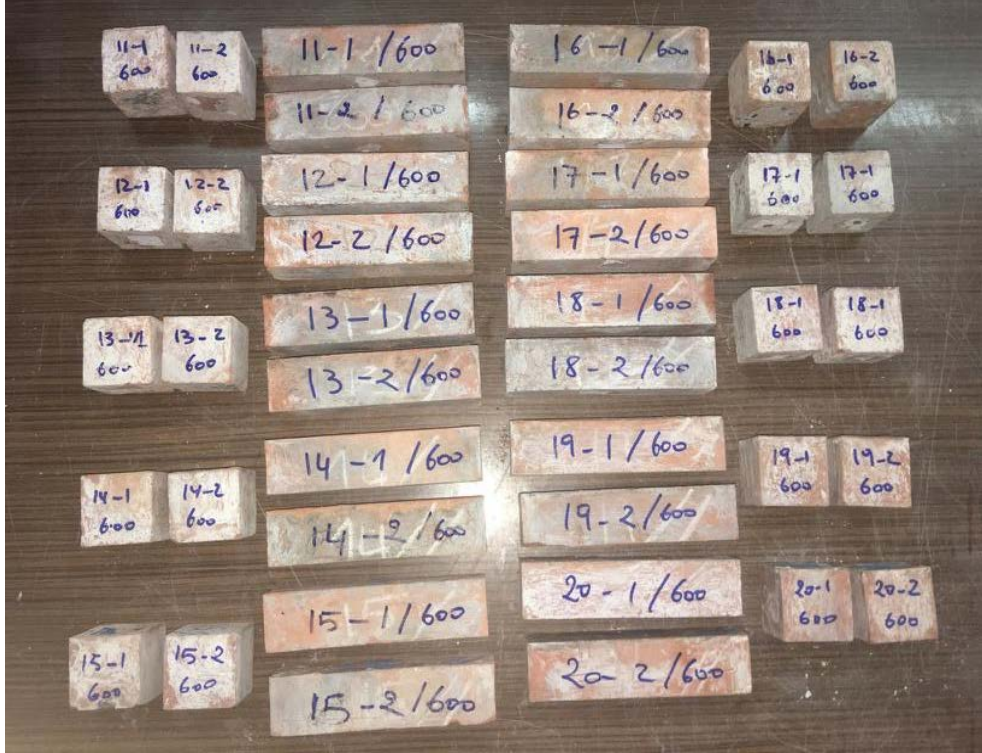 11-1
600
11-2
600
11-1 /600
11-2 / 600
16-1/600
16-2 / 600
16-1
600
16-2
600
12-1
600
12-2
600
12-1/600
12-2 /600
17-1/600
17-2/600
17-1
600
17-1
600
13-1
600
13-2
600
13-1/600
13-2/600
18-1/600
18-2/600
18-1
600
18-1
600
14-1
600
14-2
600
14-1 /600
14-2/600
19-1/600
19-2/600
19-1
600
19-2
600
15-1
600
15-2
600
15-1/600
15-2/600
20-1/600
20-2/600
20-1
600
20-2
600